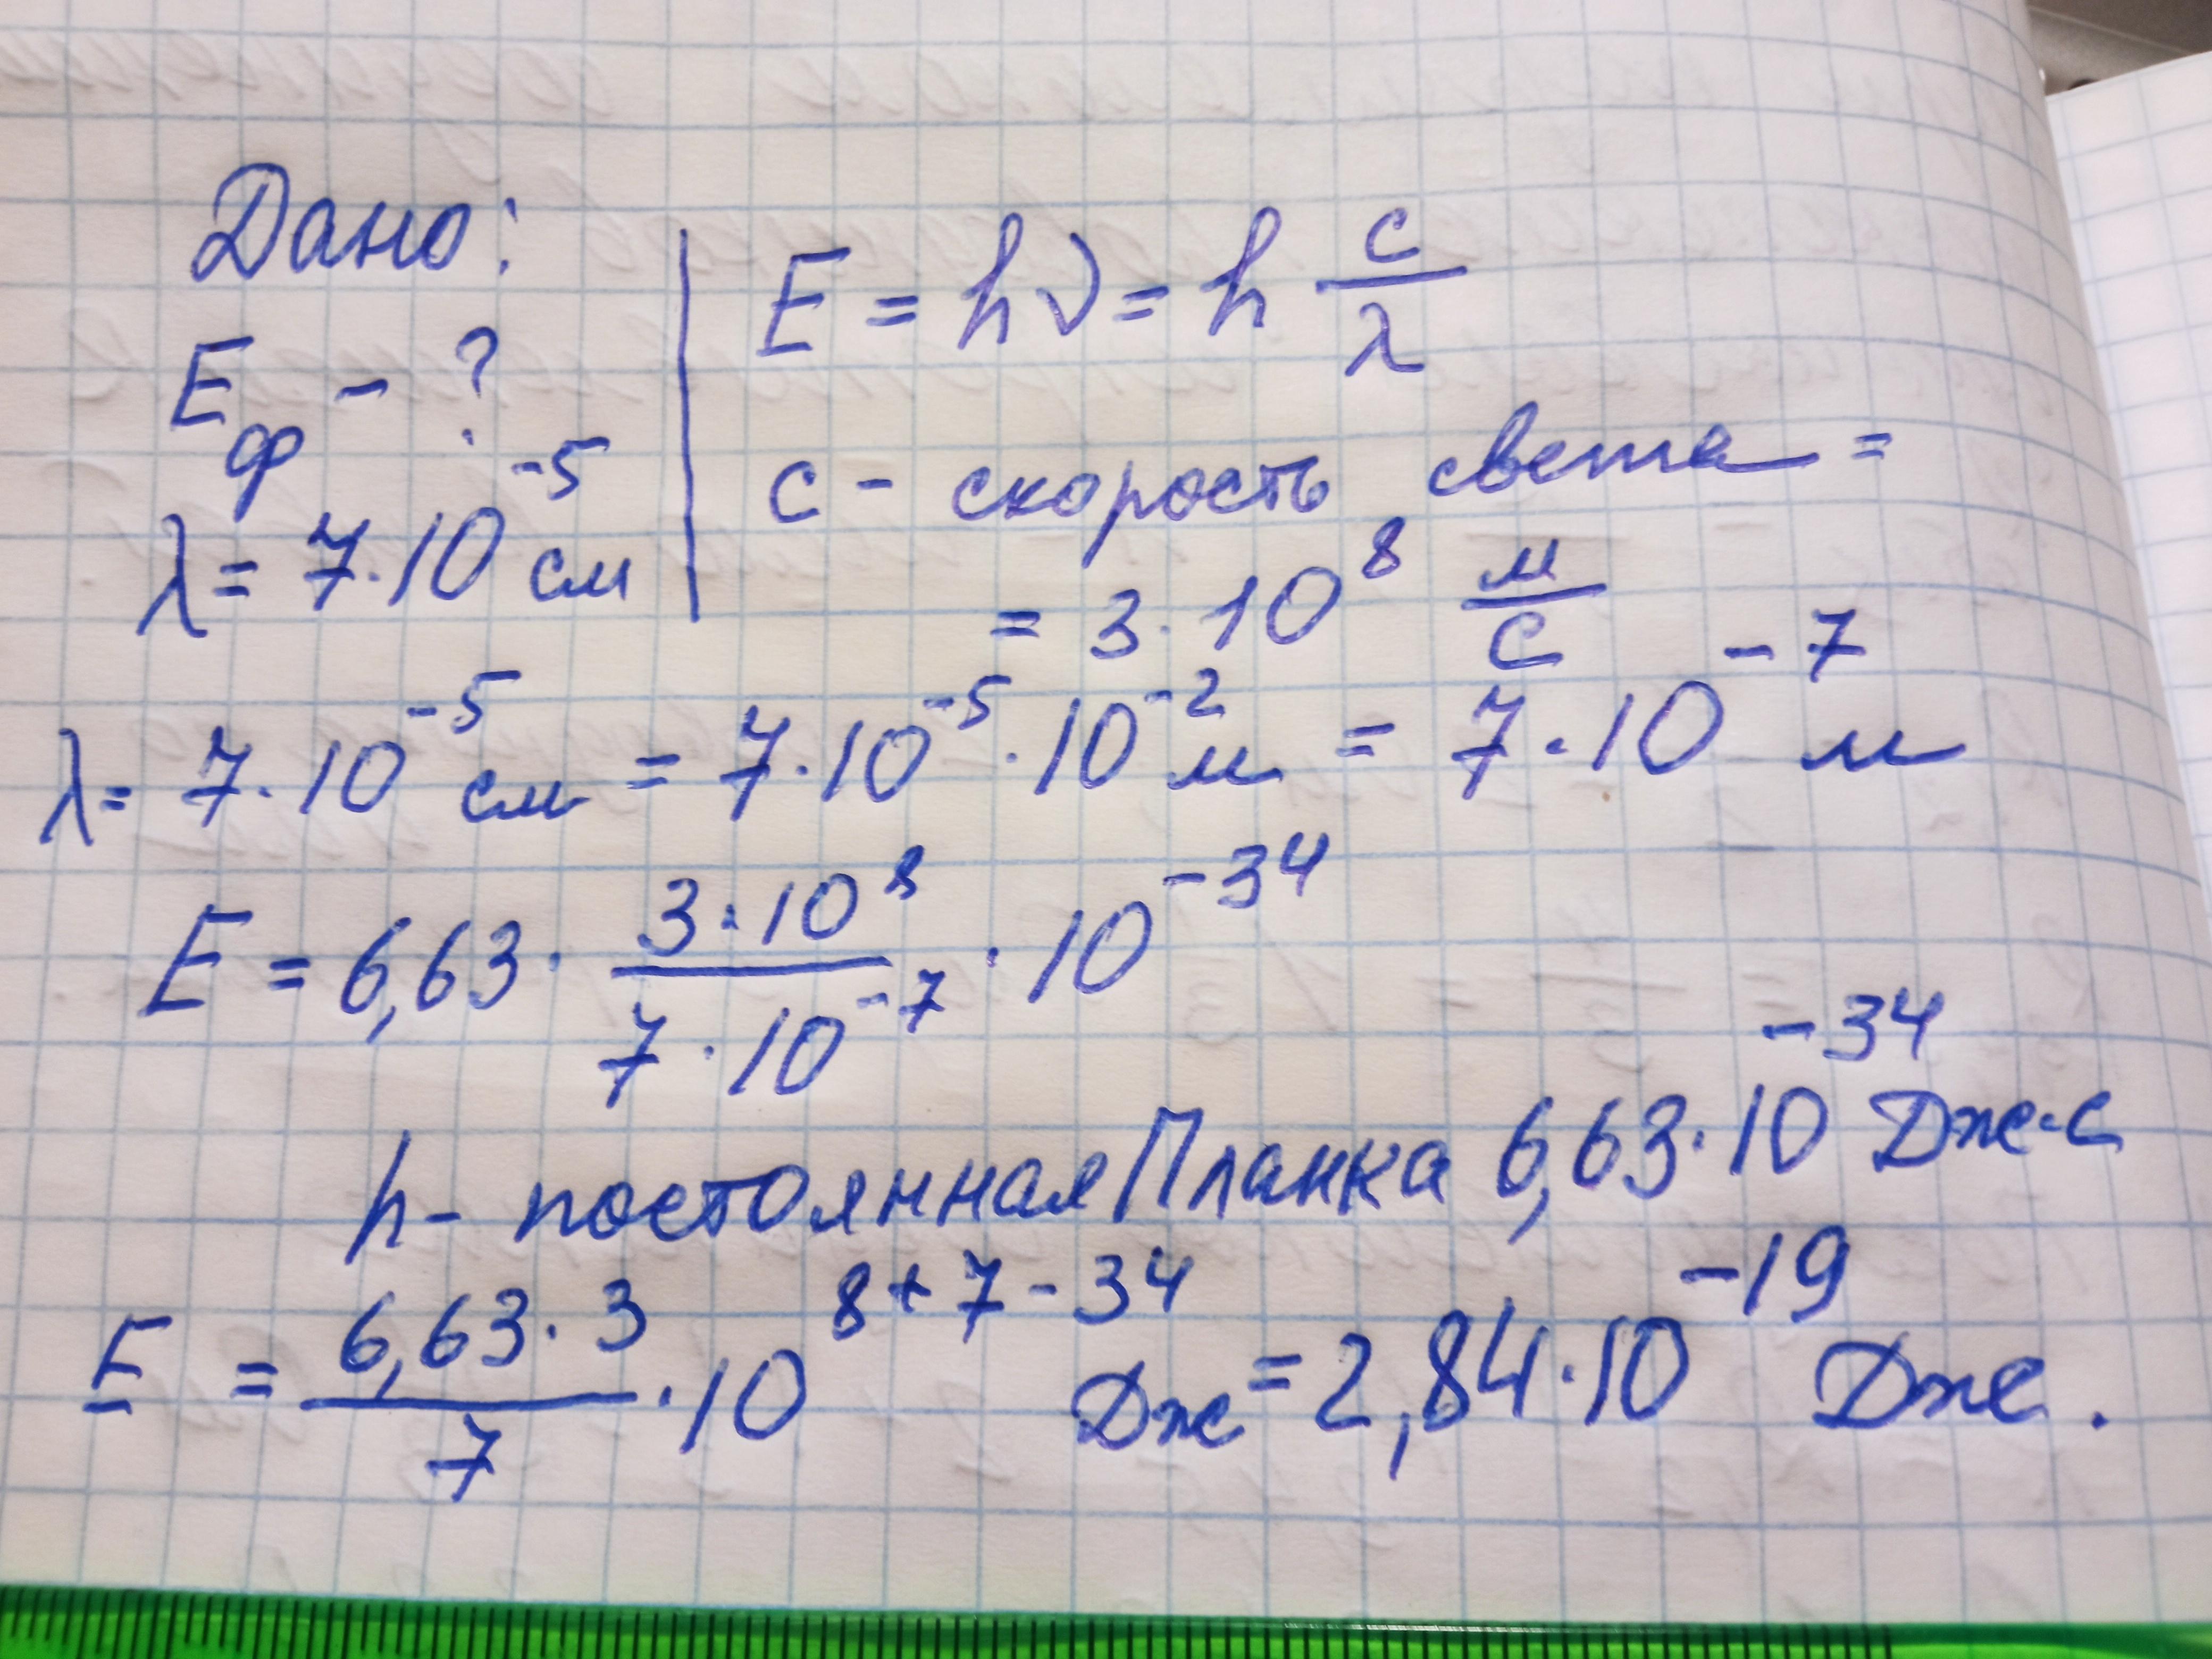 Дано:
Eф - ?
λ = 7·10⁻⁵ см
E = hν = h c/λ
c - скорость света =
= 3·10⁸ м/с
λ = 7·10⁻⁵ см = 7·10⁻⁵·10⁻² м = 7·10⁻⁷ м
E = 6,63 · (3·10⁸)/(7·10⁻⁷) · 10⁻³⁴
h - постоянная Планка 6,63·10⁻³⁴ Дж·с
E = (6,63·3)/7 · 10⁸⁺⁷⁻³⁴ Дж = 2,84·10⁻¹⁹ Дж.